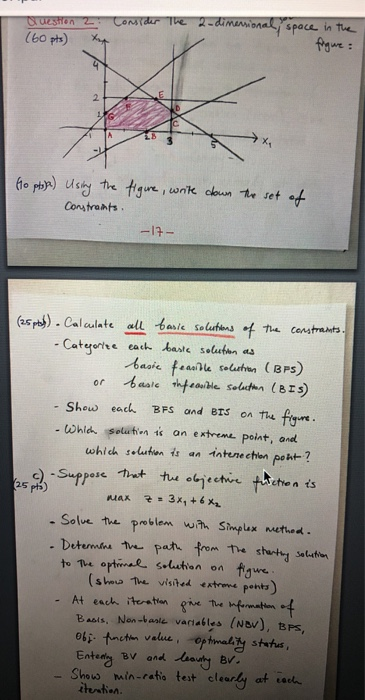 Question 2: Consider the 2-dimensional space in the
(60 pts) figure:
X₂
4
2
F E
G D
1 C
A 2 B 3 5 X₁
-1 -1
(10 pts) a) Using the figure, write down the set of
Constraints.
-17-
(25 pts) b) - Calculate all basic solutions of the constraints.
- Categorize each basic solution as
basic feasible solution (BFS)
or basic infeasible solution (BIS)
- Show each BFS and BIS on the figure.
- Which solution is an extreme point, and
which solution is an intersection point?
(25 pts) c) - Suppose that the objective function is
max z = 3x₁ + 6x₂
- Solve the problem with Simplex method.
- Determine the path from the starting solution
to the optimal solution on figure.
(show the visited extreme points)
- At each iteration give the information of
Basis, Non-basic variables (NBV), BFS,
Obj. function value, optimality status,
Entering BV and leaving BV.
- Show min-ratio test clearly at each
iteration.